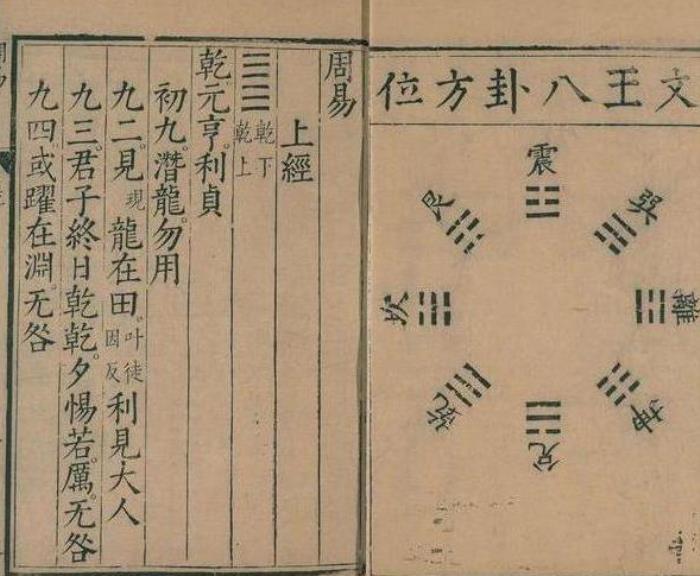 文王八卦方位
震
巽
離
坤
兌
乾
坎
艮
周易
上經
乾下
乾上
乾。元亨。利貞
初九。潛龍。勿用
九二。見現龍在田。叶徒因反利見大人
九三。君子終日乾乾。夕惕若。厲。无咎
九四。或躍在淵。无咎